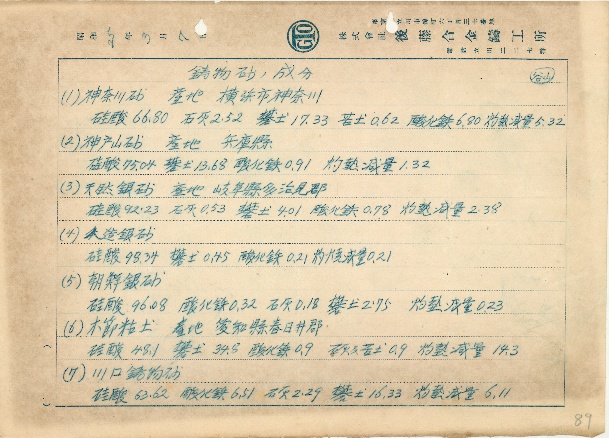 昭和25年3月7日
GIO
株式會社 後藤合金鑄工所
鋳物砂,成分
(1)神奈川砂 産地 横浜市神奈川
硅酸66.80 石灰2.52 礬土17.33 苦土0.62 酸化鉄6.80 灼熱減量5.32
(2)神戸山砂 産地 兵庫縣
硅酸75.04 礬土13.68 酸化鉄0.91 灼熱減量1.32
(3)天然銀砂 産地 岐阜縣多治見郡
硅酸92.23 石灰0.53 礬土4.01 酸化鉄0.78 灼熱減量2.38
(4)人造銀砂
硅酸98.34 礬土0.45 酸化鉄0.21 灼焼減量0.21
(5)朝鮮銀砂
硅酸96.08 酸化鉄0.32 石灰0.18 礬土2.75 灼熱減量0.23
(6)木節粘土 産地 愛知縣春日井郡
硅酸48.1 礬土34.8 酸化鉄0.9 苦土0.9 灼熱減量14.3
(7)川口鋳物砂
硅酸63.62 酸化鉄6.51 石灰2.29 礬土16.33 灼熱減量6.11
89